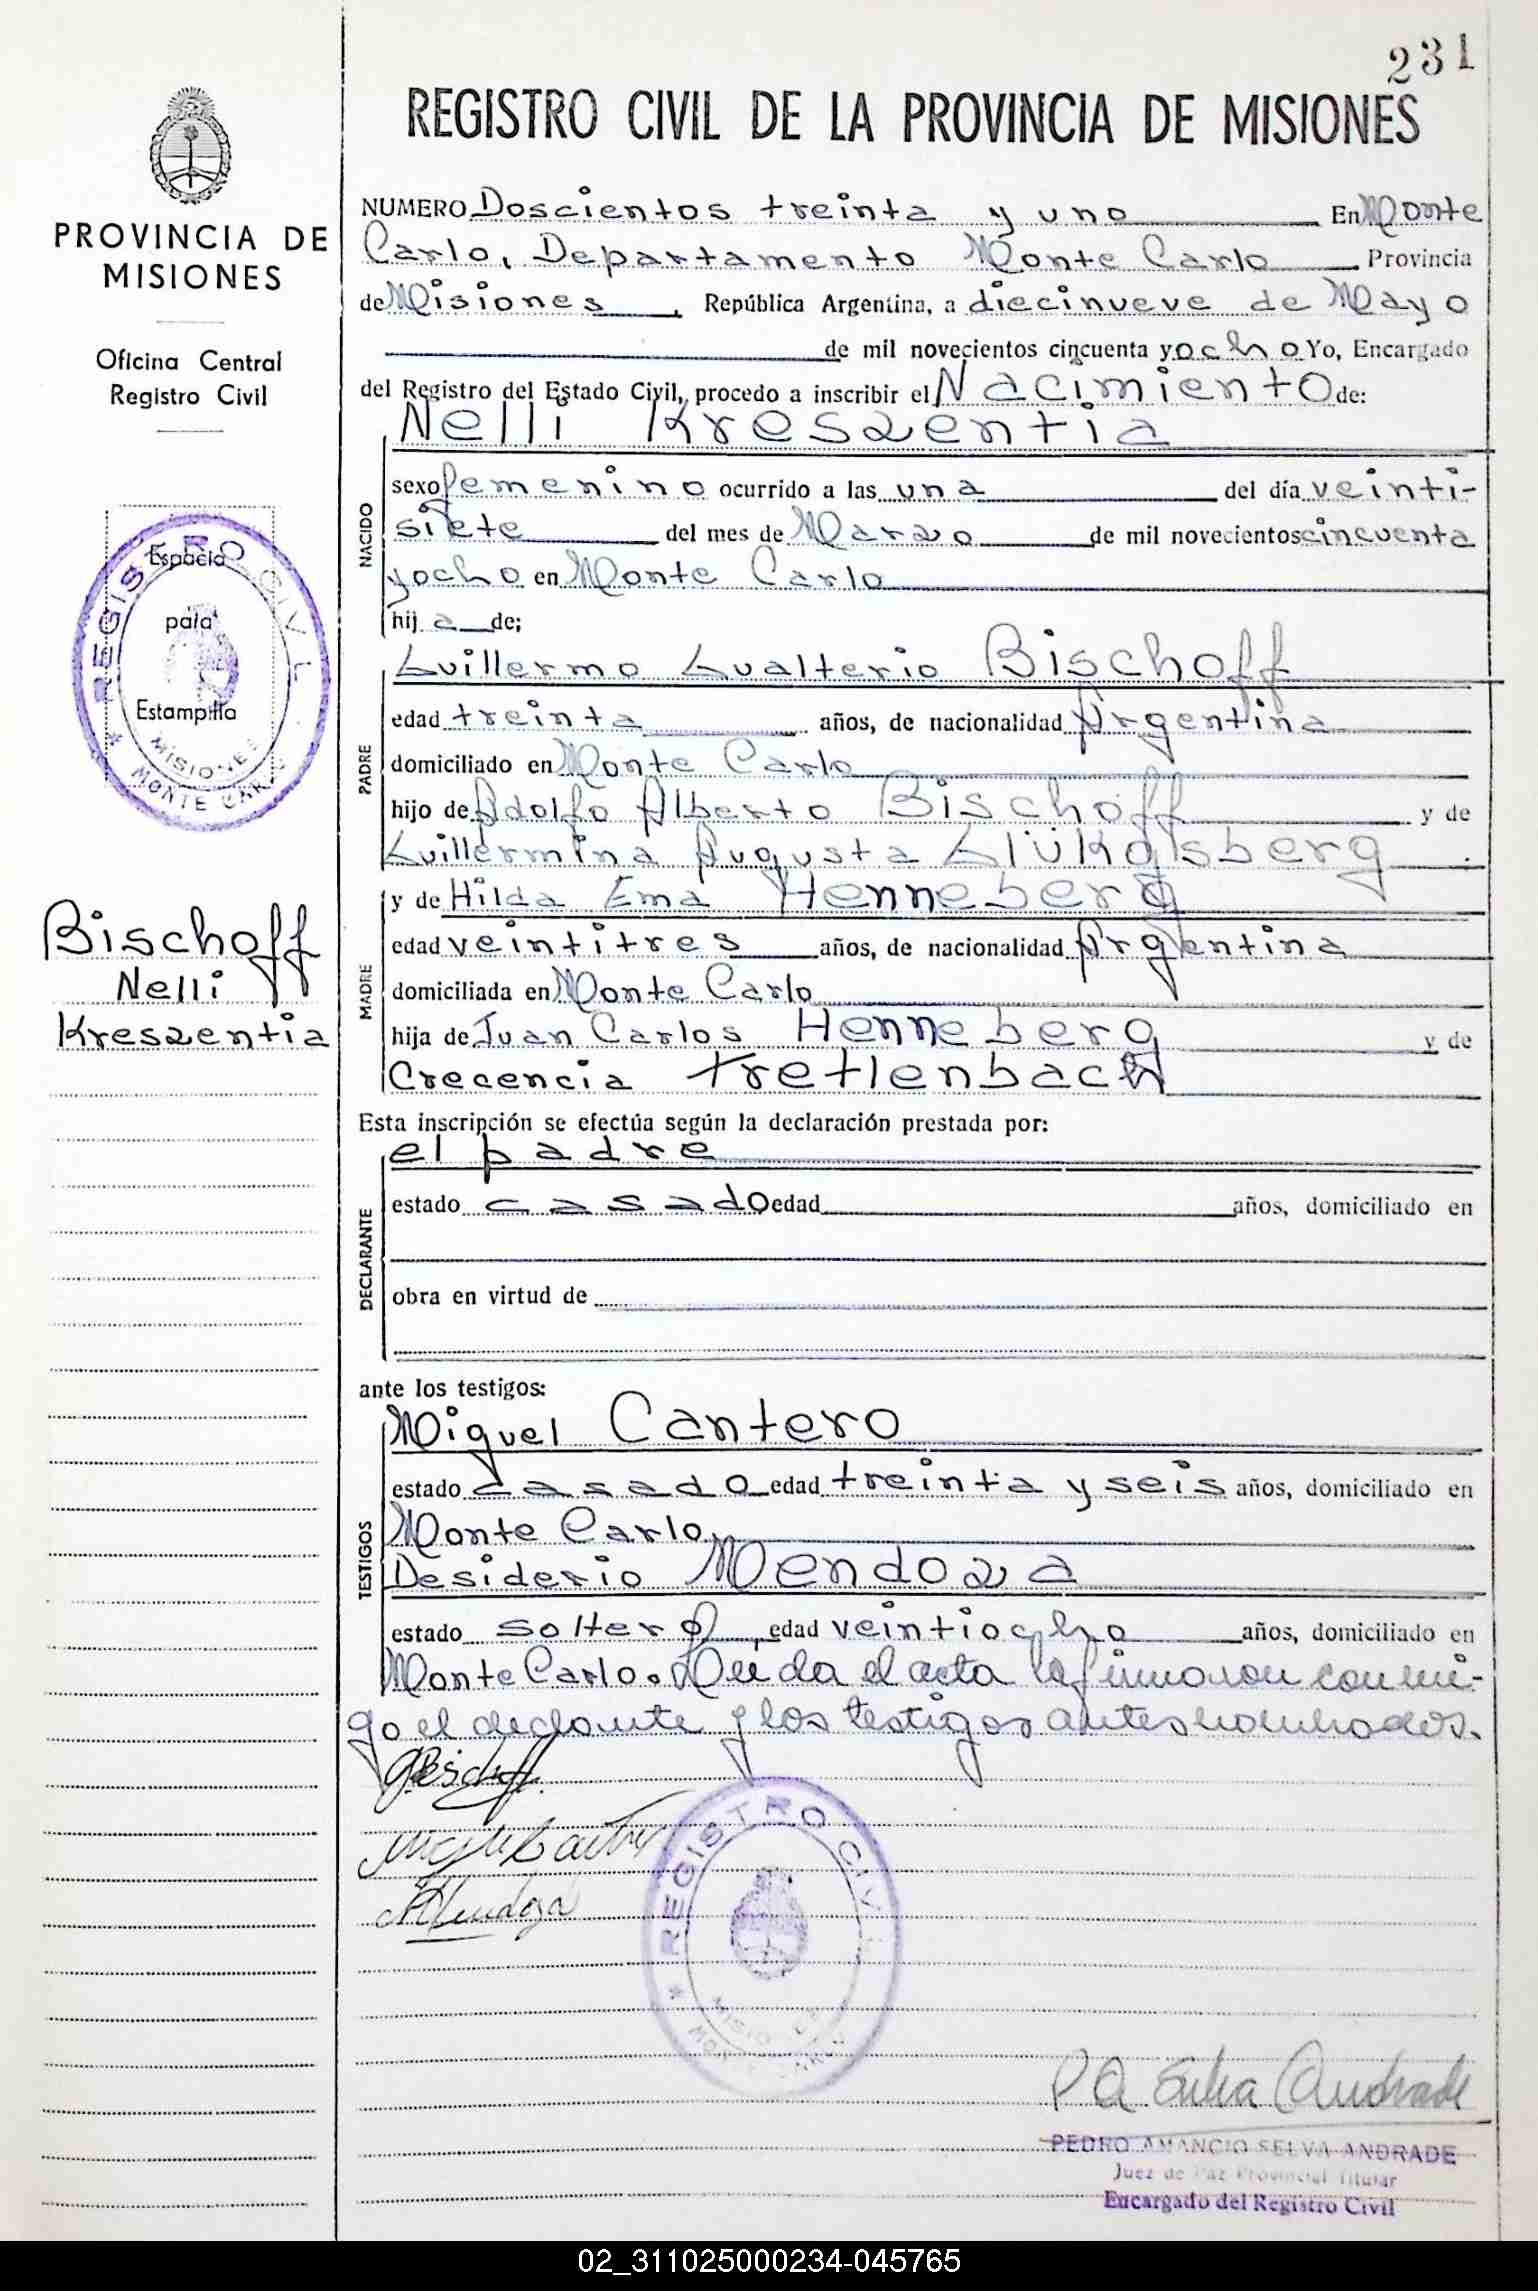 231
REGISTRO CIVIL DE LA PROVINCIA DE MISIONES
PROVINCIA DE
MISIONES
Oficina Central
Registro Civil
Espacio
para
Estampilla
REGISTRO CIVIL
MISIONES
* MONTE CARLO
Bischoff
Nelli
Kreszentia
NUMERO Doscientos treinta y uno En Monte
Carlo, Departamento Monte Carlo Provincia
de Misiones, República Argentina, a diecinueve de Mayo
de mil novecientos cincuenta y ocho Yo, Encargado
del Registro del Estado Civil, procedo a inscribir el Nacimiento de:
Nelli Kreszentia
NACIDO
sexo femenino ocurrido a las una del día veinti-
siete del mes de Marzo de mil novecientos cincuenta
y ocho en Monte Carlo
hij a de;
Guillermo Gualterio Bischoff
PADRE
edad treinta años, de nacionalidad Argentina
domiciliado en Monte Carlo
hijo de Adolfo Alberto Bischoff y de
Guillermina Augusta Glükgsberg
y de Hilda Ema Henneberg
MADRE
edad veintitres años, de nacionalidad Argentina
domiciliada en Monte Carlo
hija de Juan Carlos Henneberg y de
Crecencia Tretlenbach
Esta inscripción se efectúa según la declaración prestada por:
el padre
DECLARANTE
estado casado edad años, domiciliado en
obra en virtud de
ante los testigos:
Miguel Cantero
TESTIGOS
estado casado edad treinta y seis años, domiciliado en
Monte Carlo,
Desiderio Mendoza
estado soltero, edad veintiocho años, domiciliado en
Monte Carlo. Leida el acta la firmaron conmi-
go el declante y los testigos antes nombrados.
G Bischoff.
Miguel Cantero
Mendoza
REGISTRO CIVIL
MISIONES
* MONTE CARLO
P A Selva Andrade
PEDRO AMANCIO SELVA ANDRADE
Juez de Paz Provincial Titular
Encargado del Registro Civil
02_311025000234-045765